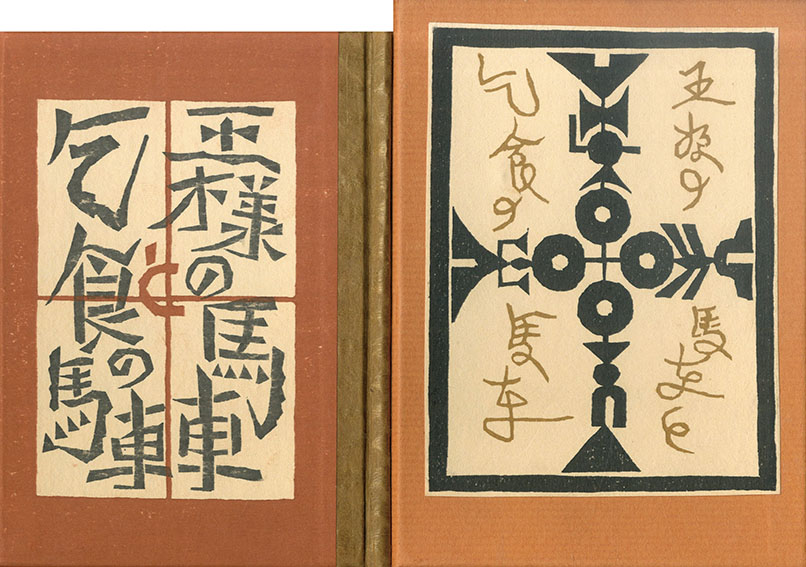 王様の馬車
と
乞食の馬車
王様の
馬車と
乞食の
馬車